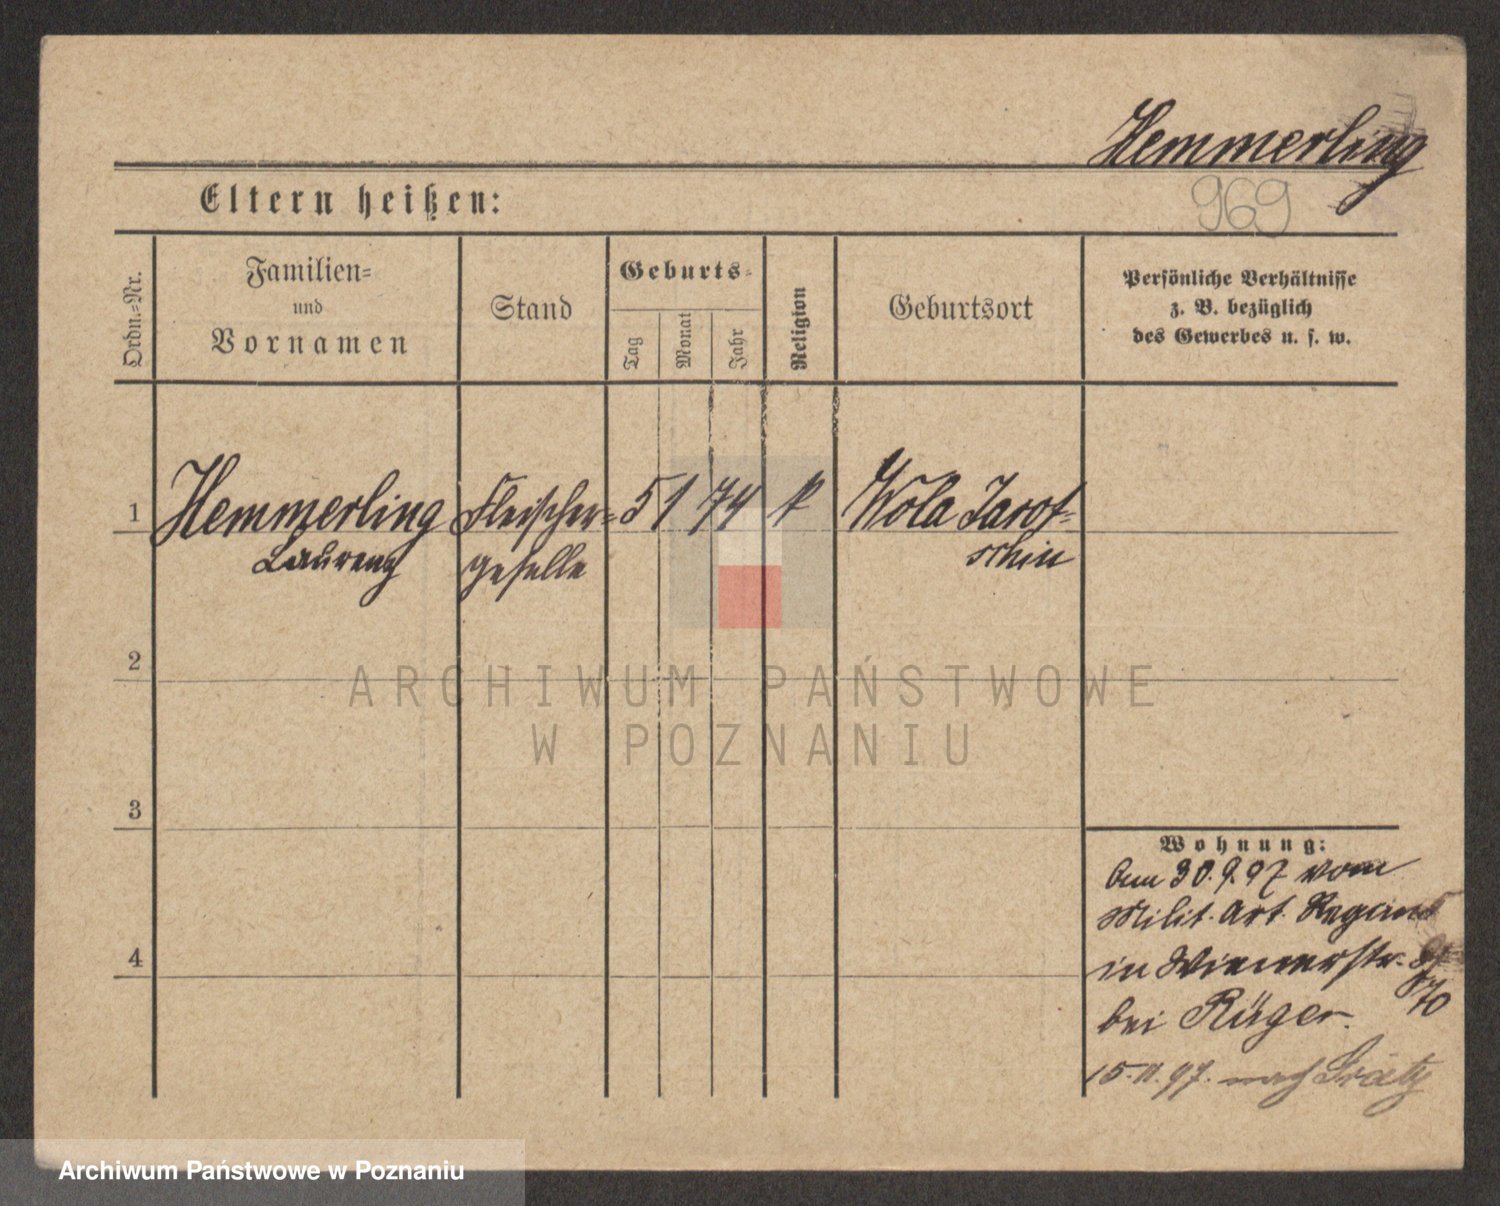 Hemmerling
969
Eltern heißen:
Ordn.=Nr.
Familien=
und
Vornamen
Stand
Geburts=
Tag
Monat
Jahr
Religion
Geburtsort
Persönliche Verhältnisse
z. B. bezüglich
des Gewerbes u. s. w.
1 Hemmerling Fleischer= 5 1 74 k Wola Jarot=
Laurenz geselle schin
2
ARCHIWUM PAŃSTWOWE
W POZNANIU
3
4
Wohnung:
Am 30.9.97 vom
Milit. Art. Regim
in Wienerstr.
bei Rüger.
15.11.97. nach Grätz
Archiwum Państwowe w Poznaniu